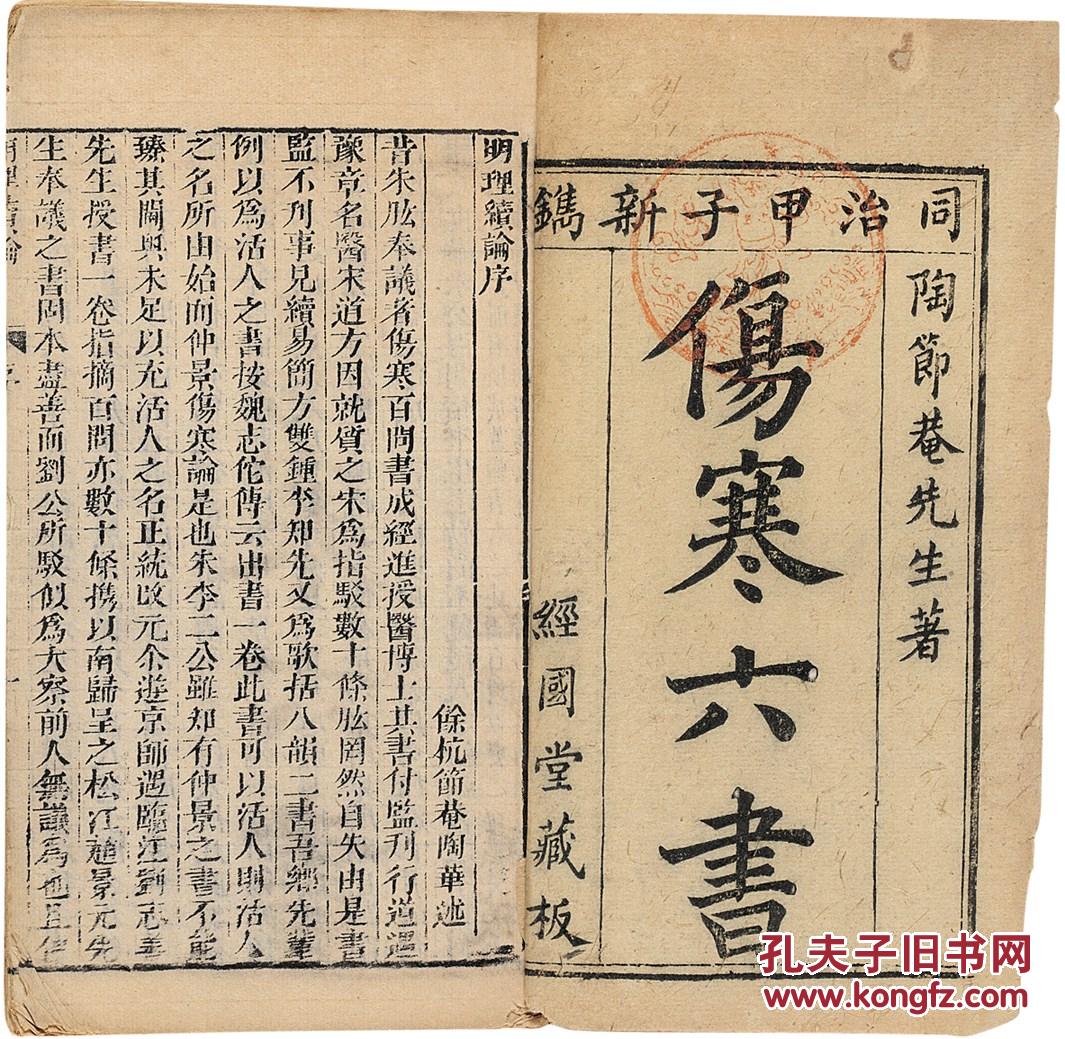 同治甲子新鐫
陶節菴先生著
傷寒六書
經國堂藏板
明理續論序
餘杭節菴陶華述
昔朱肱奉議著傷寒百問書成經進授醫博士其書付監刊行道遇
豫章名醫宋道方因就質之宋為指駁數十條肱罔然自失由是書
監不刊事見續易簡方雙鍾李知先又為歌括八韻二書吾鄉先輩
例以為活人之書按魏志佗傳云出書一卷此書可以活人則活人
之名所由始而仲景傷寒論是也朱李二公雖知有仲景之書不能
臻其閫奧未足以充活人之名正統改元余遊京師遇臨江劉志善
先生授書一卷指摘百問亦數十條携以南歸呈之松江趙景元先
生奉議之書固本盡善而劉公所駁似為太察前人無議為也且
孔夫子旧书网
www.kongfz.com